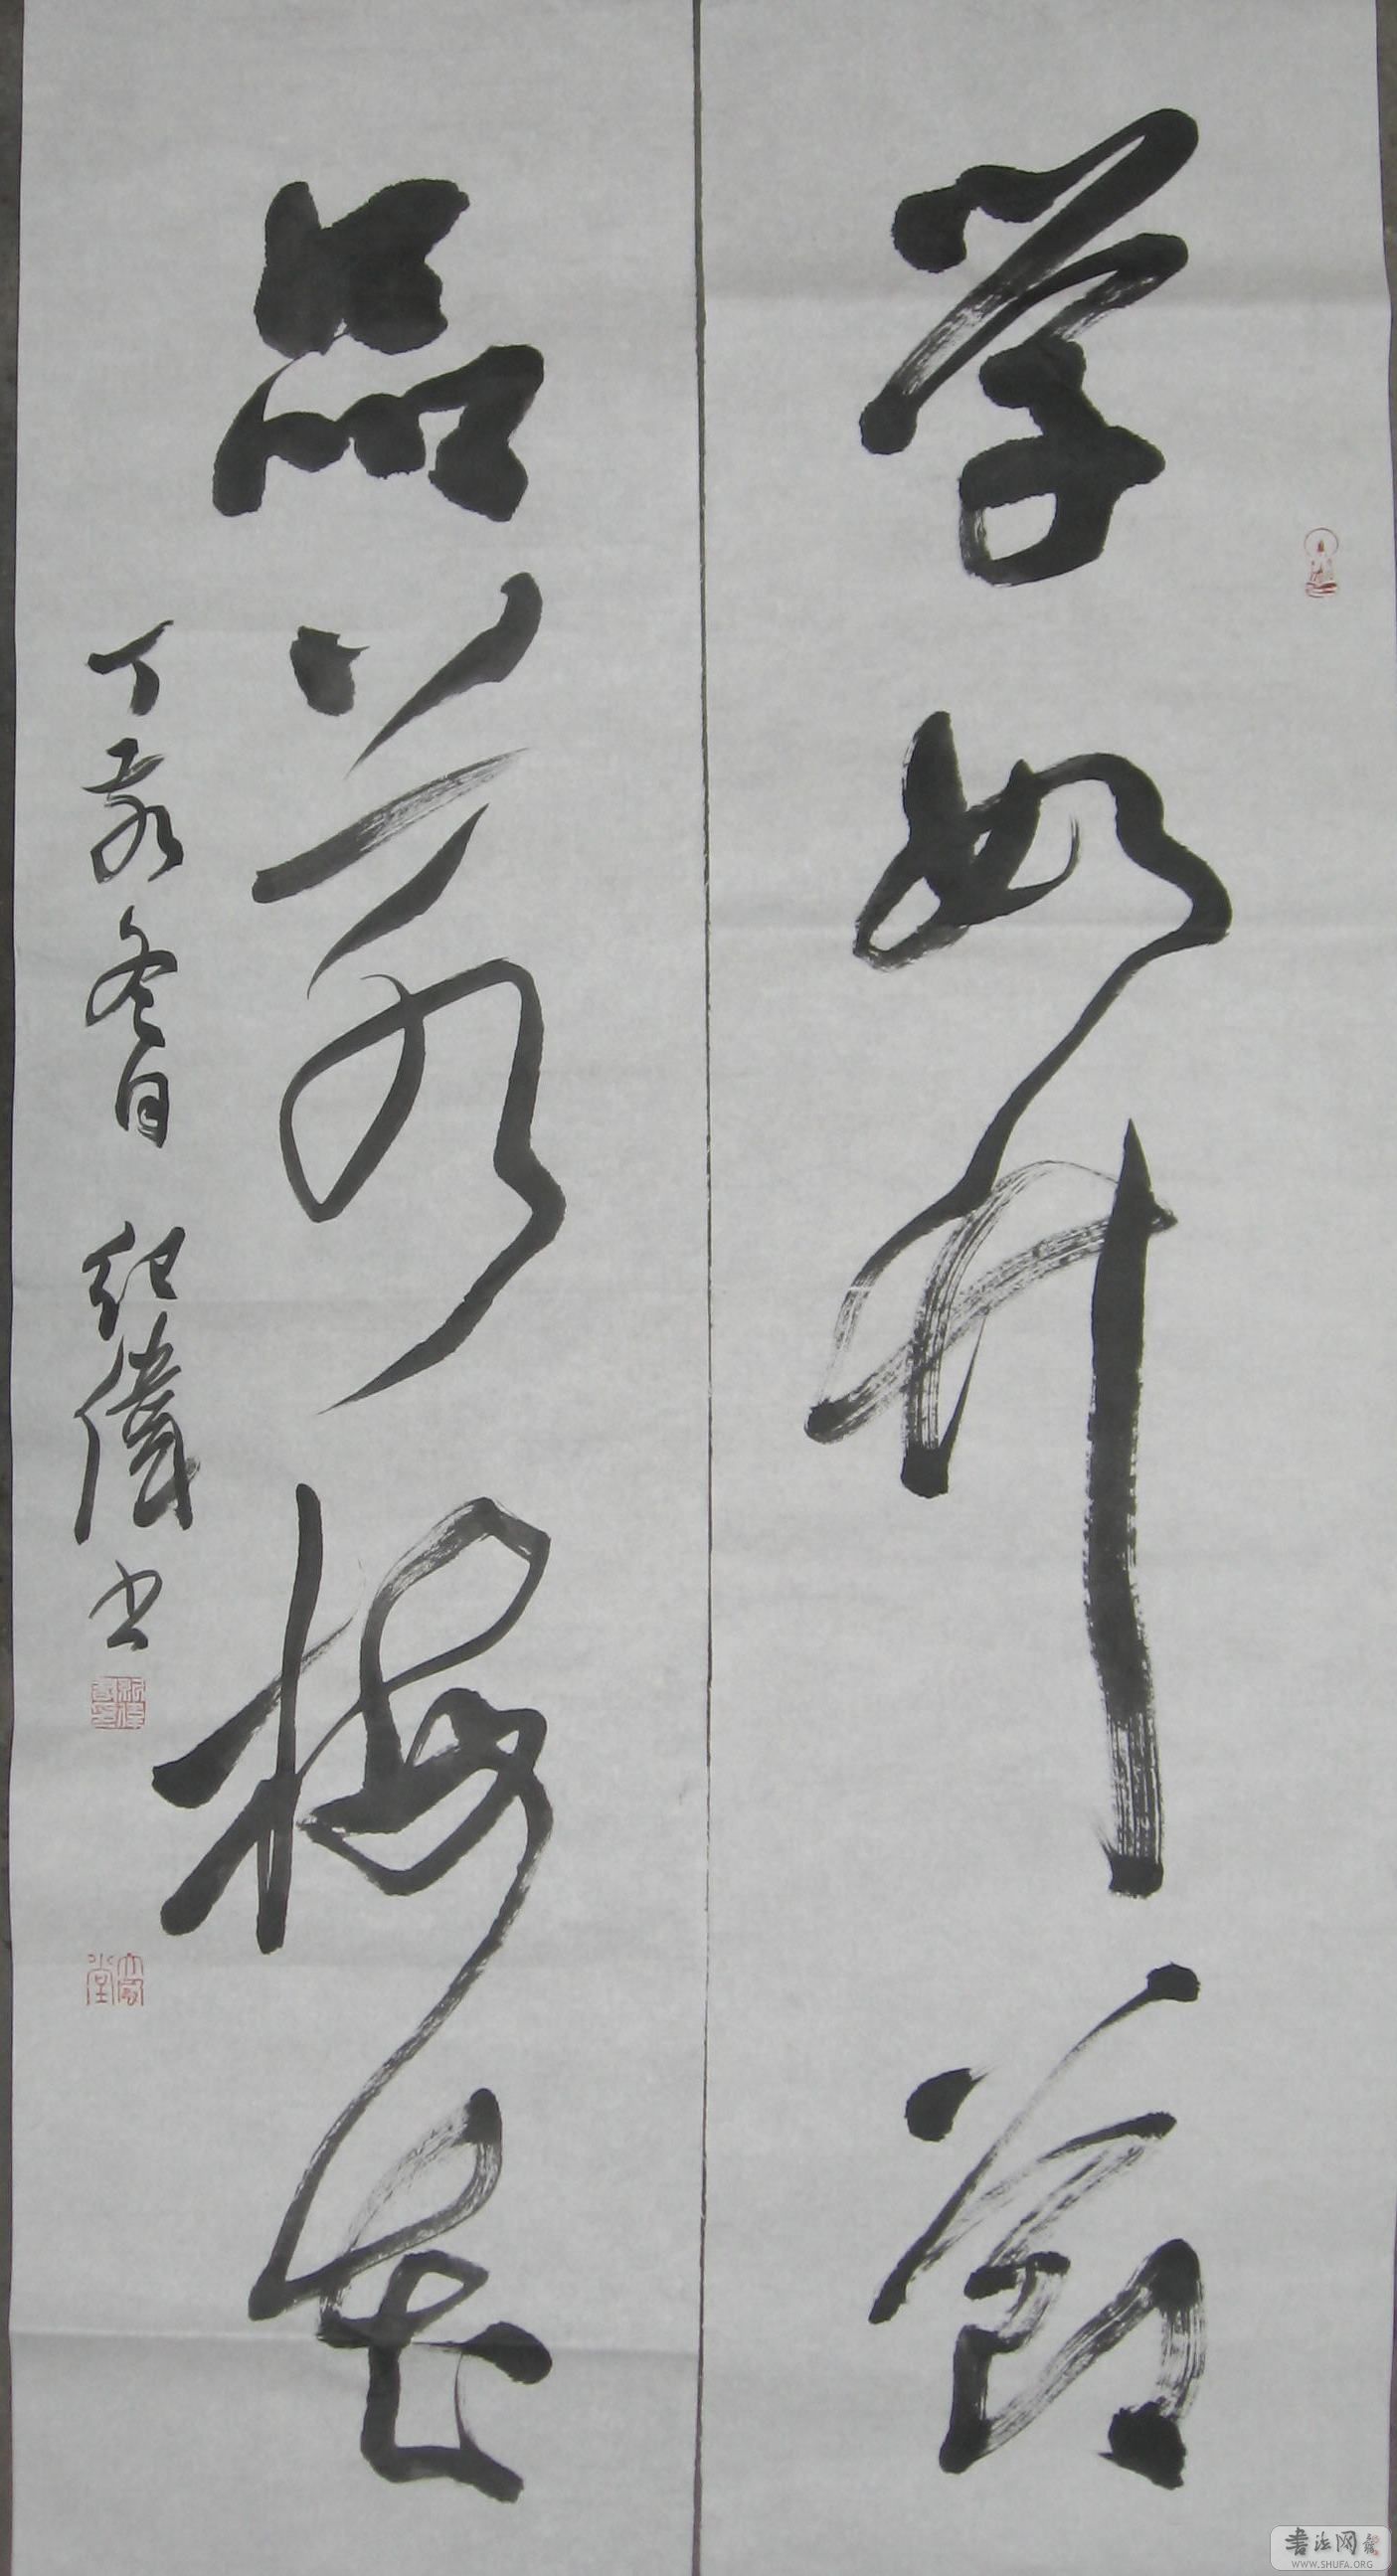 学如竹节
品若梅花
丁亥冬日 纪伟书
书法网
WWW.SHUFA.ORG